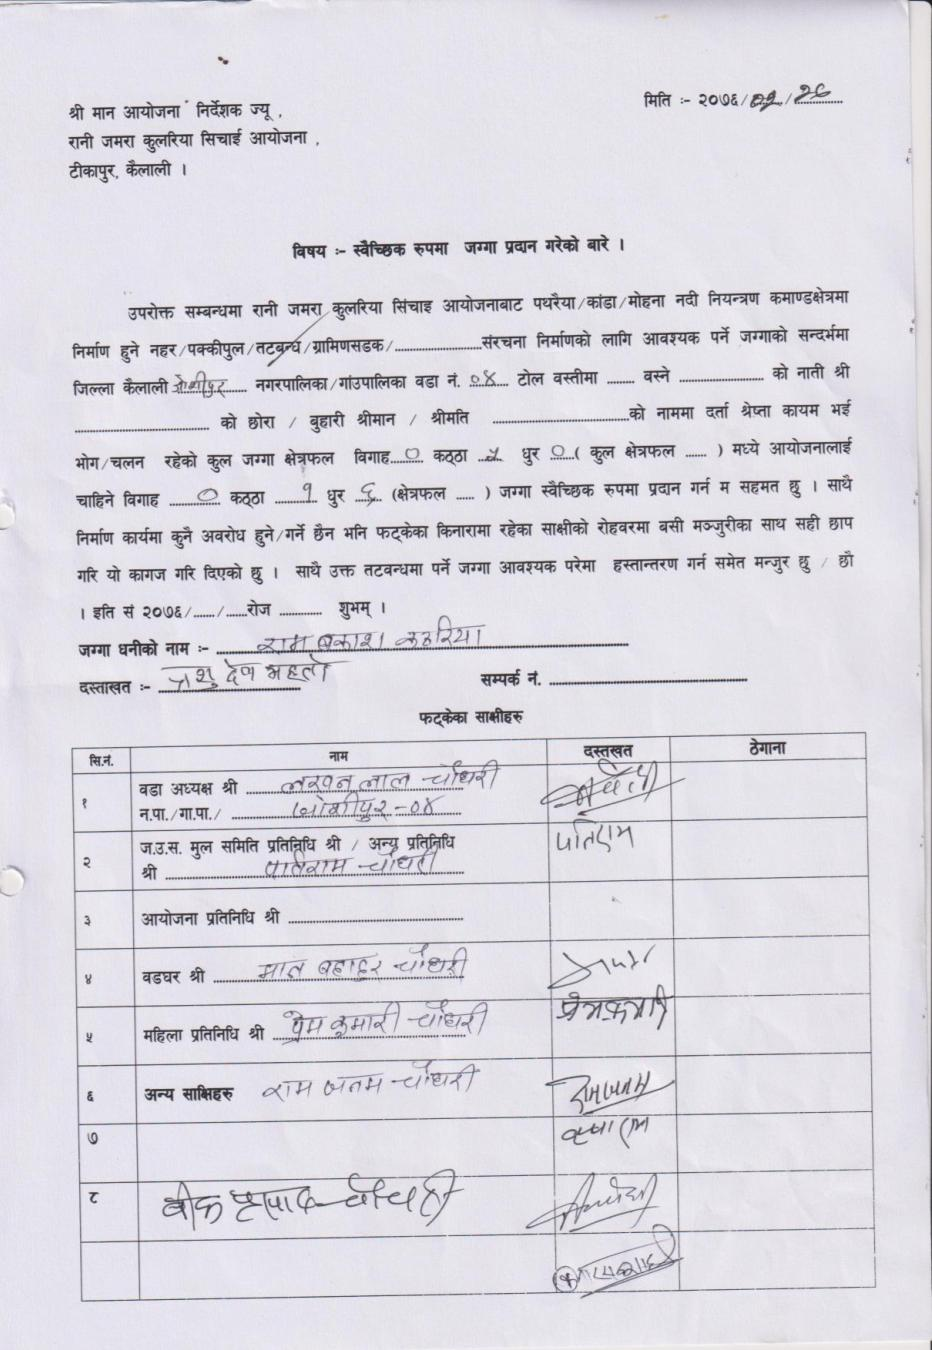 मिति :- २०७६/०२/२६
श्री मान आयोजना निर्देशक ज्यू ,
रानी जमरा कुलरिया सिचाई आयोजना ,
टीकापुर, कैलाली ।
विषय :- स्वैच्छिक रुपमा जग्गा प्रदान गरेको बारे ।
उपरोक्त सम्बन्धमा रानी जमरा कुलरिया सिंचाइ आयोजनाबाट पथरैया/कांडा/मोहना नदी नियन्त्रण कमाण्डक्षेत्रमा
निर्माण हुने नहर/पक्कीपुल/तटबन्ध/ग्रामिणसडक/....................संरचना निर्माणको लागि आवश्यक पर्ने जग्गाको सन्दर्भमा
जिल्ला कैलाली जोशीपुर नगरपालिका/गांउपालिका वडा नं. ०४ टोल वस्तीमा ....... वस्ने ..................... को नाती श्री
................................. को छोरा / बुहारी श्रीमान / श्रीमति .................................को नाममा दर्ता श्रेष्ता कायम भई
भोग/चलन रहेको कुल जग्गा क्षेत्रफल विगाह ० कठ्ठा धुर ० ( कुल क्षेत्रफल ...... ) मध्ये आयोजनालाई
चाहिने विगाह ० कठ्ठा १ धुर ६ (क्षेत्रफल ..... ) जग्गा स्वैच्छिक रुपमा प्रदान गर्न म सहमत छु । साथै
निर्माण कार्यमा कुनै अवरोध हुने/गर्ने छैन भनि फट्केका किनारामा रहेका साक्षीको रोहवरमा बसी मञ्जुरीका साथ सही छाप
गरि यो कागज गरि दिएको छु । साथै उक्त तटवन्धमा पर्ने जग्गा आवश्यक परेमा हस्तान्तरण गर्न समेत मन्जुर छु / छौ
। इति सं २०७६/....../......रोज ........... शुभम् ।
जग्गा धनीको नाम :- राम प्रकाश कठरिया
दस्ताखत :- देव महतो सम्पर्क नं. .................................................
फट्केका साक्षीहरु
सि.नं. नाम दस्तखत ठेगाना
१ वडा अध्यक्ष श्री लखन लाल चौधरी
न.पा./गा.पा./ जोशीपुर-०४
२ ज.उ.स. मुल समिति प्रतिनिधि श्री / अन्य प्रतिनिधि
श्री पतिराम चौधरी पतिराम
३ आयोजना प्रतिनिधि श्री ............................................
४ वडघर श्री मान बहादुर चौधरी
५ महिला प्रतिनिधि श्री प्रेम कुमारी चौधरी प्रेमकुमारी
६ अन्य साक्षिहरु राम जनम चौधरी रामजनम
७
८ प्रसाद चौधरी